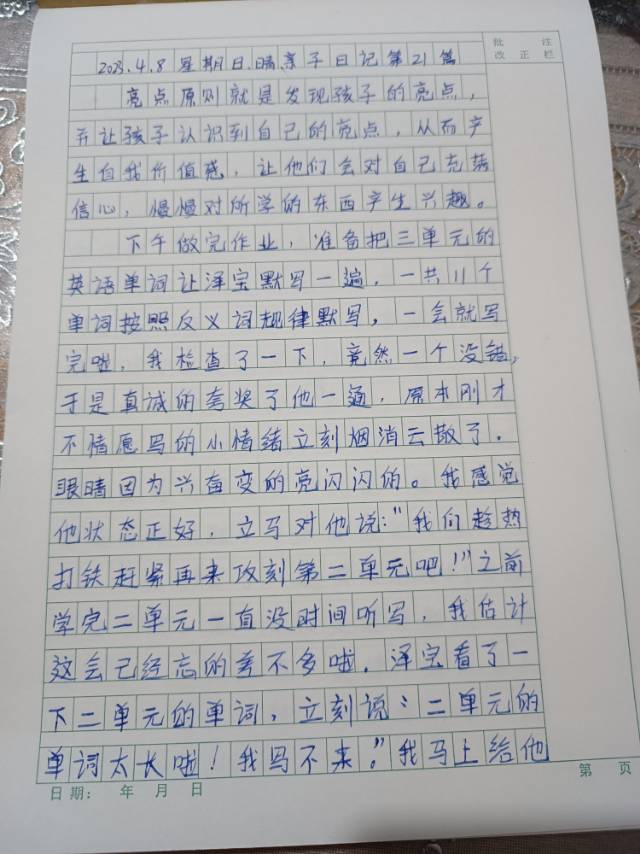 批 注
改 正 栏
2023.4.8 星期日.晴.亲子日记第21篇
亮点原则就是发现孩子的亮点,
并让孩子认识到自己的亮点,从而产
生自我价值感,让他们会对自己充满
信心,慢慢对所学的东西产生兴趣。
下午做完作业,准备把三单元的
英语单词让泽宝默写一遍,一共11个
单词按照反义词规律默写,一会就写
完啦,我检查了一下,竟然一个没错,
于是真诚的夸奖了他一通,原本刚才
不情愿写的小情绪立刻烟消云散了.
眼睛因为兴奋变的亮闪闪的。我感觉
他状态正好,立马对他说:"我们趁热
打铁赶紧再来攻刻第二单元吧!"之前
学完二单元一直没时间听写,我估计
这会已经忘的差不多啦.泽宝看了一
下二单元的单词,立刻说:"二单元的
单词太长啦!我写不来."我马上给他
日期: 年 月 日
第 页